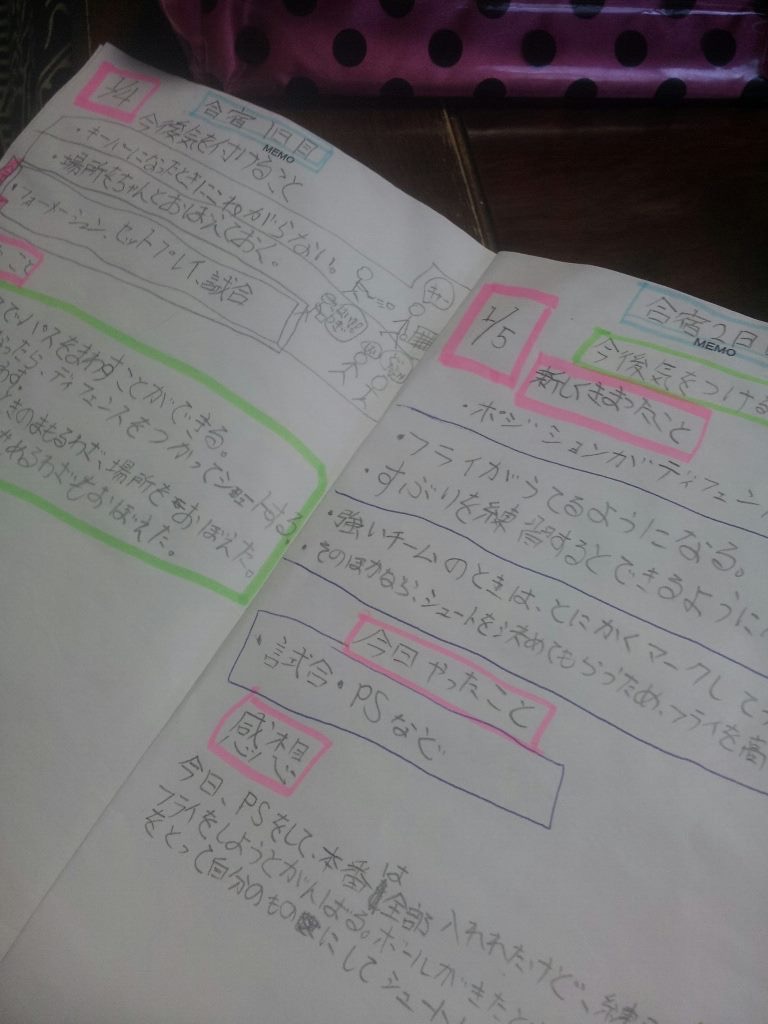 1/4
合宿1日目
MEMO
今後気を付けること
・キーパーになったときにこわがらない。
・場所もちゃんとおぼえておく。
・フォーメーション、セットプレイ、試合
こと
でパスをまわすことができる。
ったら、ティフェンスをつかってシュートする。
ときのまもるわざ、場所をおぼえた。
やれるわざもおぼえた。
1/5
合宿2日目
MEMO
今後気をつける
新しくきまったこと
・ポジションがディフェン
・フライがうてるようになる。
・すぶりを練習するとできるように
・強いチームのときは、とにかくマークして
・そのほかなら、シュートを決めてもらうため、フライを高
今日やったこと
・試合・PSなど
感想
今日、PSをして、本番は全部入れれたけど、練
フライをしようとがんばる。ボールがきたと
をとって自分のものにしてシュート